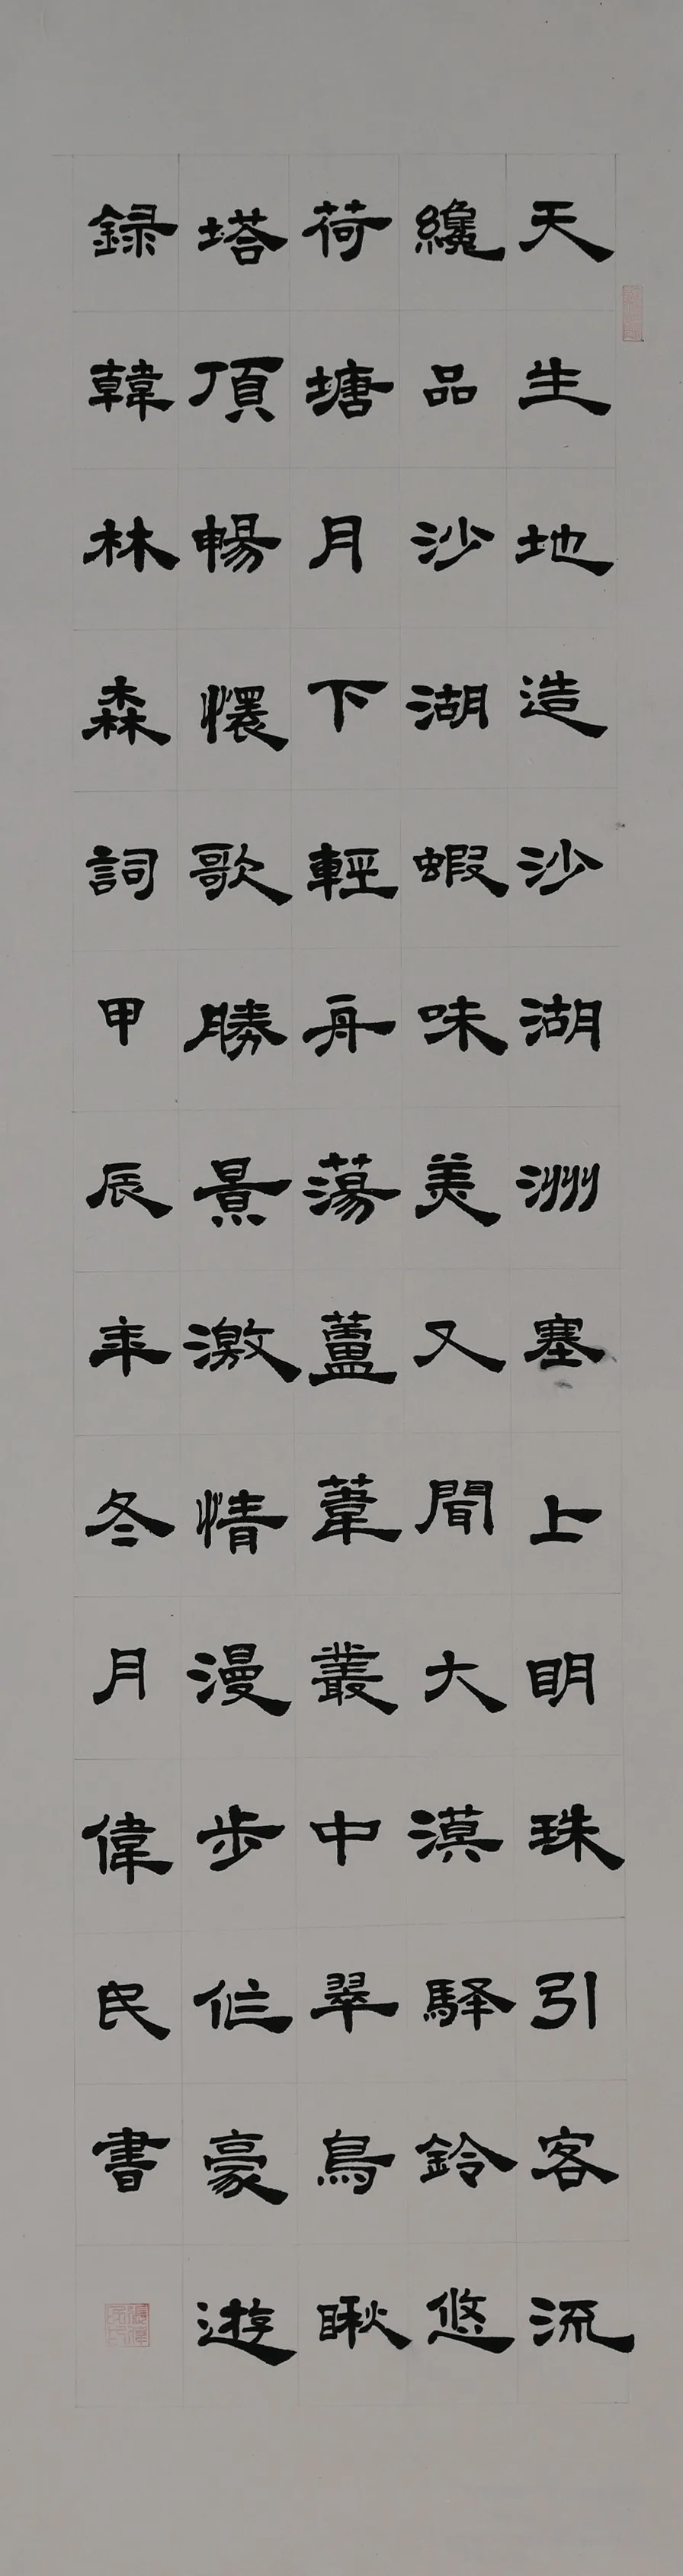 天生地造沙湖洲塞上明珠引客流
纔品沙湖蝦味美又聞大漠驛鈴悠
荷塘月下輕舟蕩蘆葦叢中翠鳥瞅
塔頂暢懷歌勝景激情漫步作豪遊
録韓林森詞甲辰年冬月偉民書